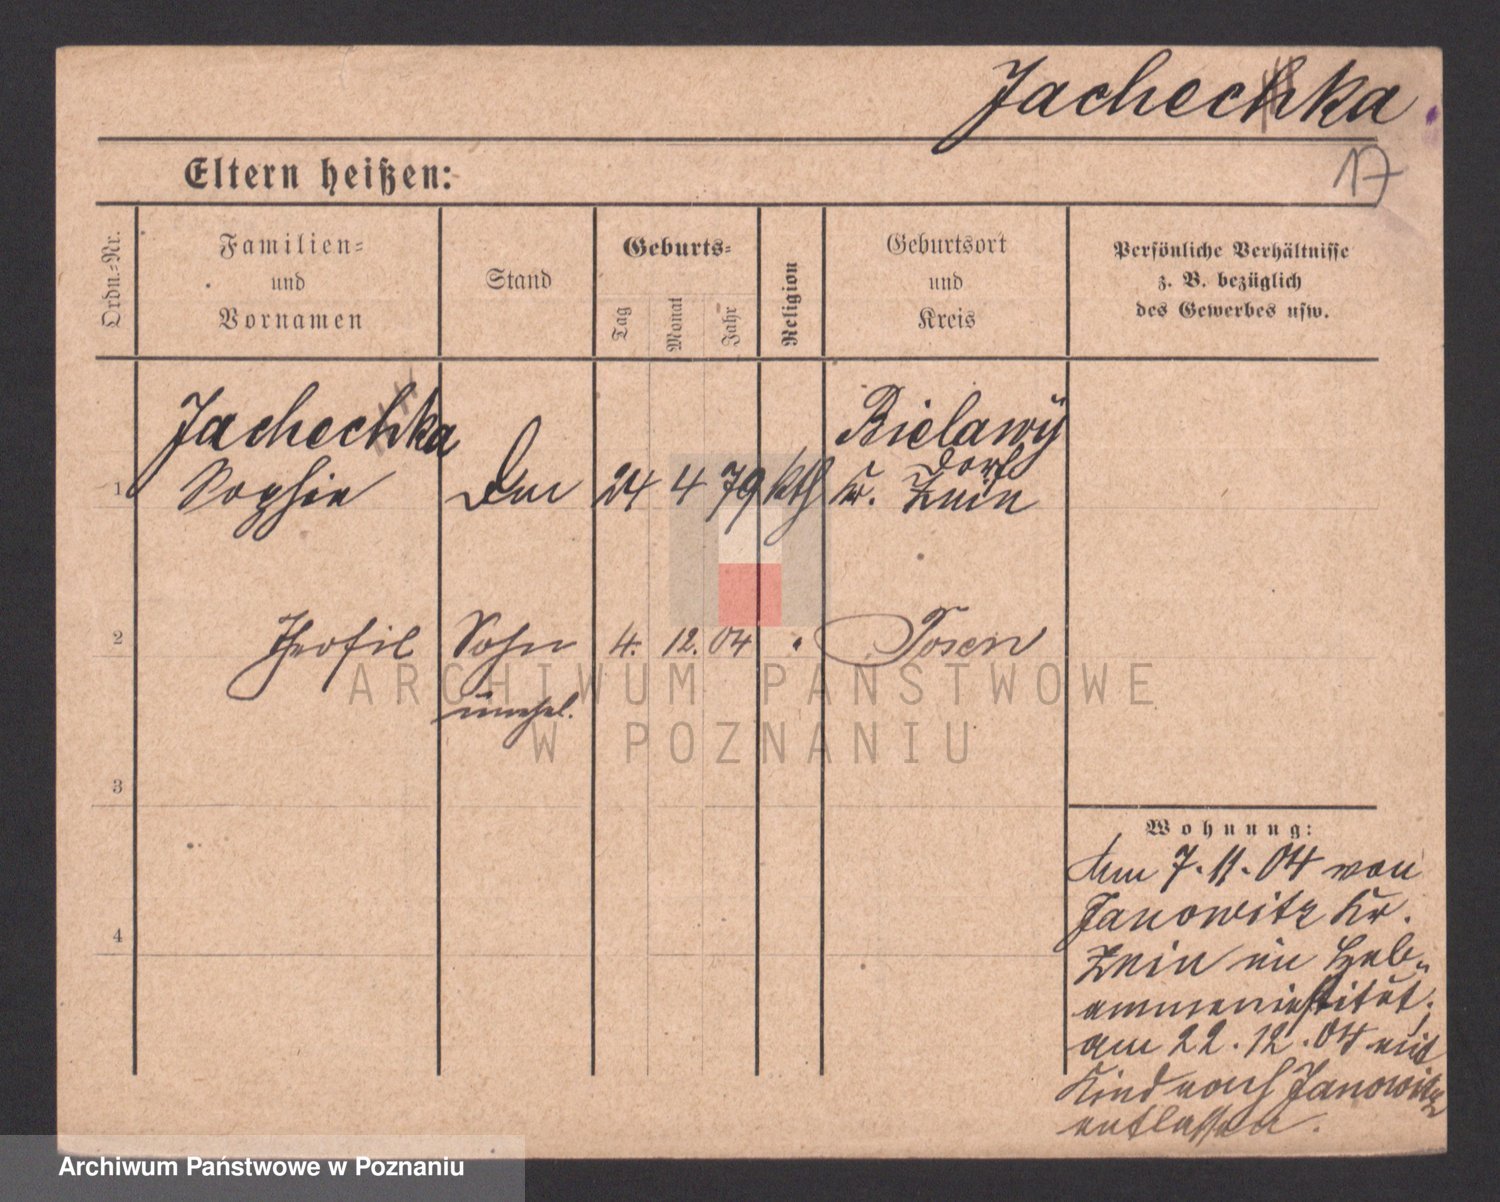 Jachechka
Eltern heißen:
17
Ordn.-Nr.
Familien-
und
Vornamen
Stand
Geburts-
Tag
Monat
Jahr
Religion
Geburtsort
und
Kreis
Persönliche Verhältnisse
z. B. bezüglich
des Gewerbes usw.
Jachechka
Bielawy
Dorf
1 Sophie 24 4 79 kth Kr. Znin
2 Theofil Sohn 4. 12. 04 Posen
unehel.
ARCHIWUM PAŃSTWOWE
W POZNANIU
3
Wohnung:
Am 7.11.04 von
Janowitz Kr.
4
Znin in Heb-
ammeninstitut,
am 22.12.04 mit
Kind nach Janowitz
entlassen.
Archiwum Państwowe w Poznaniu